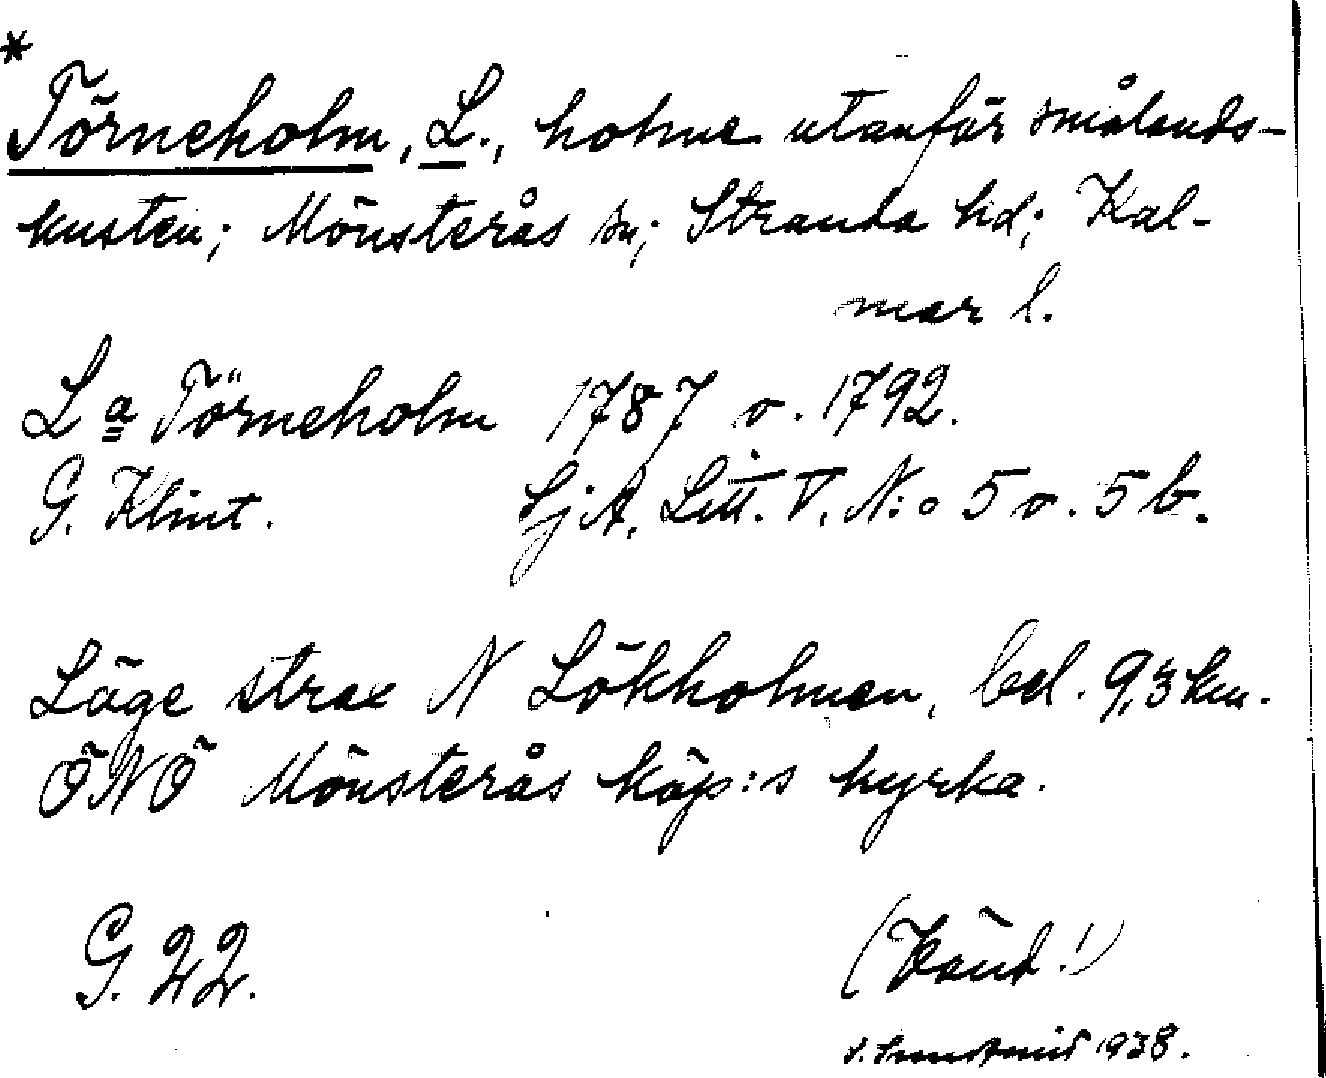 *
Törneholm, L., holme utanför smålands-
kusten; Mönsterås sn; Stranda hd; Kal-
mar l.
La Törneholm 1787 o. 1792.
G. Klint. SjA. Litt. V. N:o 5 o. 5 b.
Läge strax N Lökholmen, bel. 9,3 km.
ÖNÖ Mönsterås köp:s kyrka.
G. 22. (Känd!)
1938.